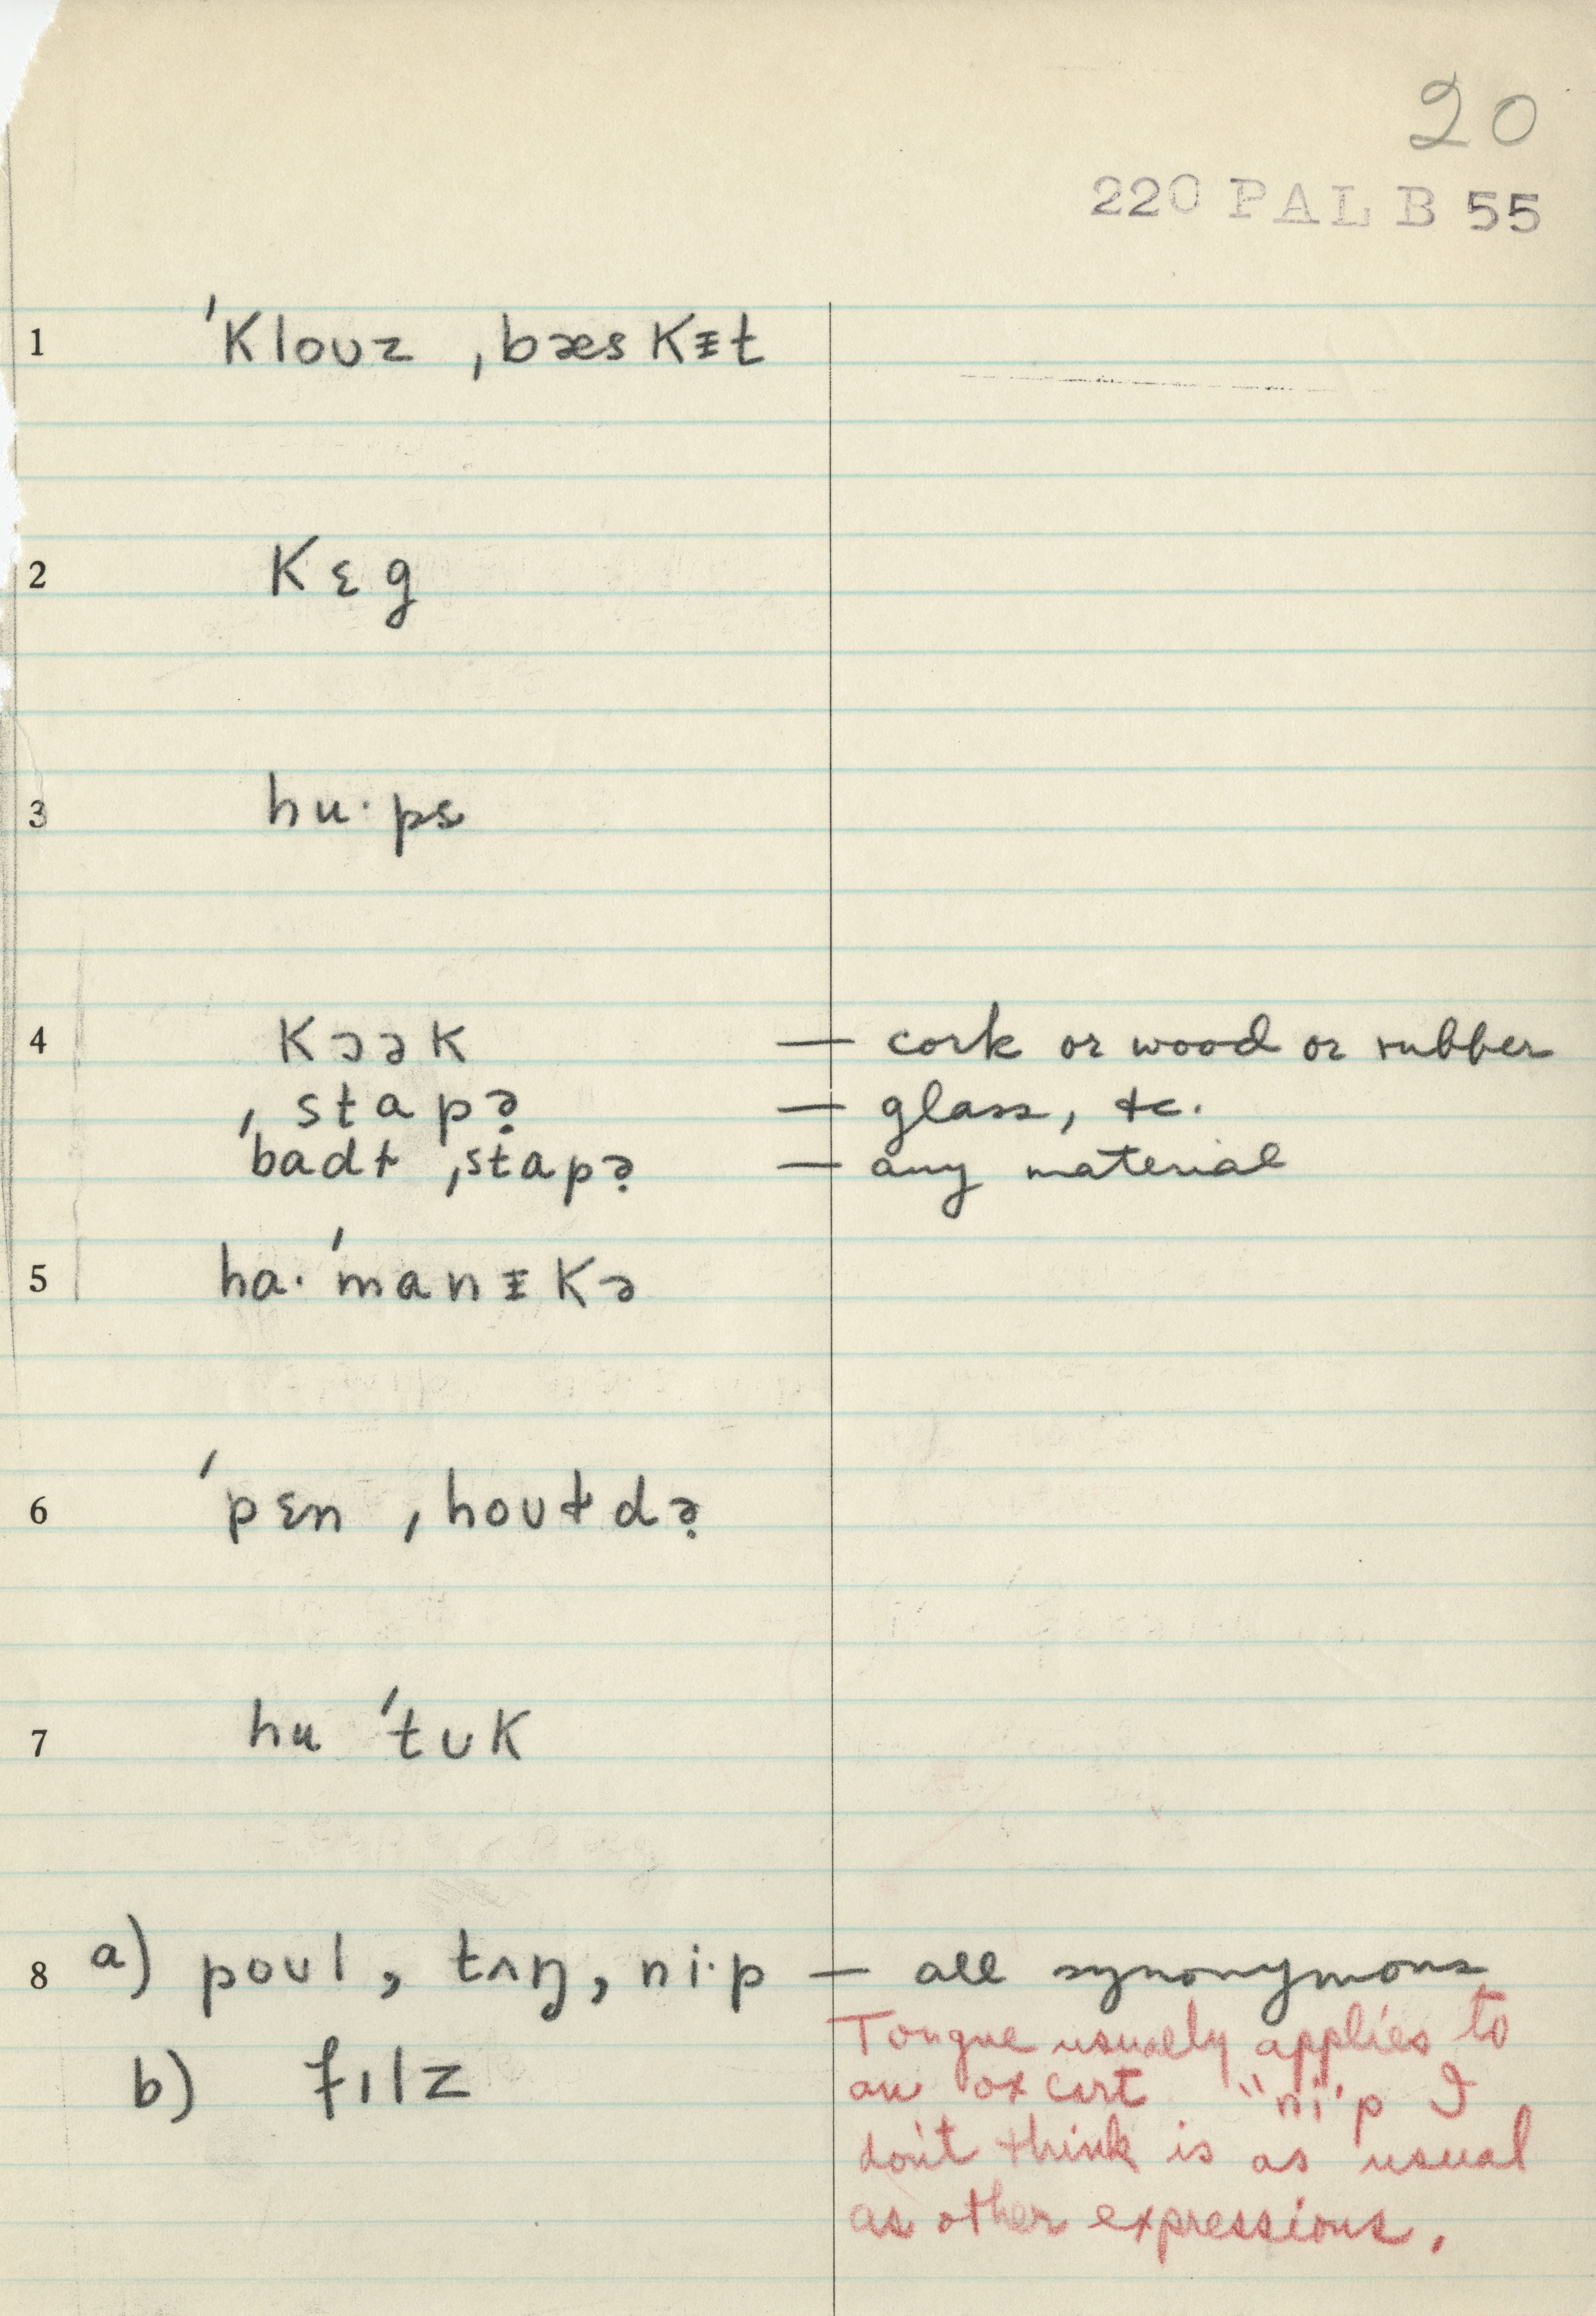 20
220 PAL B 55
1 ˈKloʊz ˌbæsKᵻt
2 Kɛg
3 hu·ps
4 KɔəK — cork or wood or rubber
ˌstapə̣ — glass, etc.
ˈbadɫ ˌstapə̣ — any material
5 ha·ˈmanᵻKə
6 ˈpɛn ˌhoʊɫdə̣
7 huˈtʊK
8 a) poʊl, tʌŋ, ni·p — all synonymous
Tongue usually applies to
an ox cart "ni·p I
b) fɪlz
don't think is as usual
as other expressions.